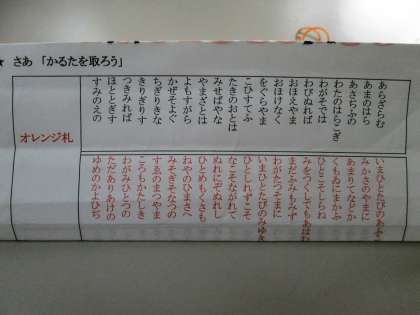 ★ さあ「かるたを取ろう」
あらざらむ
あまのはら
あさぢふの
わたのはらこぎ
わがそでは
わびぬれば
おほえやま
おほけなく
をぐらやま
こひすてふ
たきのおとは
みせばやな
やまざとは
よもすがら
かぜそよぐ
ちぎりきな
きりぎりす
つきみれば
ほととぎす
すみのえの
いまひとたびのあふ
みかさのやまに
あまりてなどか
くもゐにまがふ
ひとこそしらね
みをつくしてもあはむ
まだふみもみず
わがたつそまに
いまひとたびのみゆき
ひとしれずこそ
なこそながれて
ぬれにぞぬれし
ひとめもくさも
ねやのひまさへ
みそぎぞなつの
すゑのまつやま
ころもかたしき
わがみひとつの
ただありあけの
ゆめのかよひぢ
オレンジ札